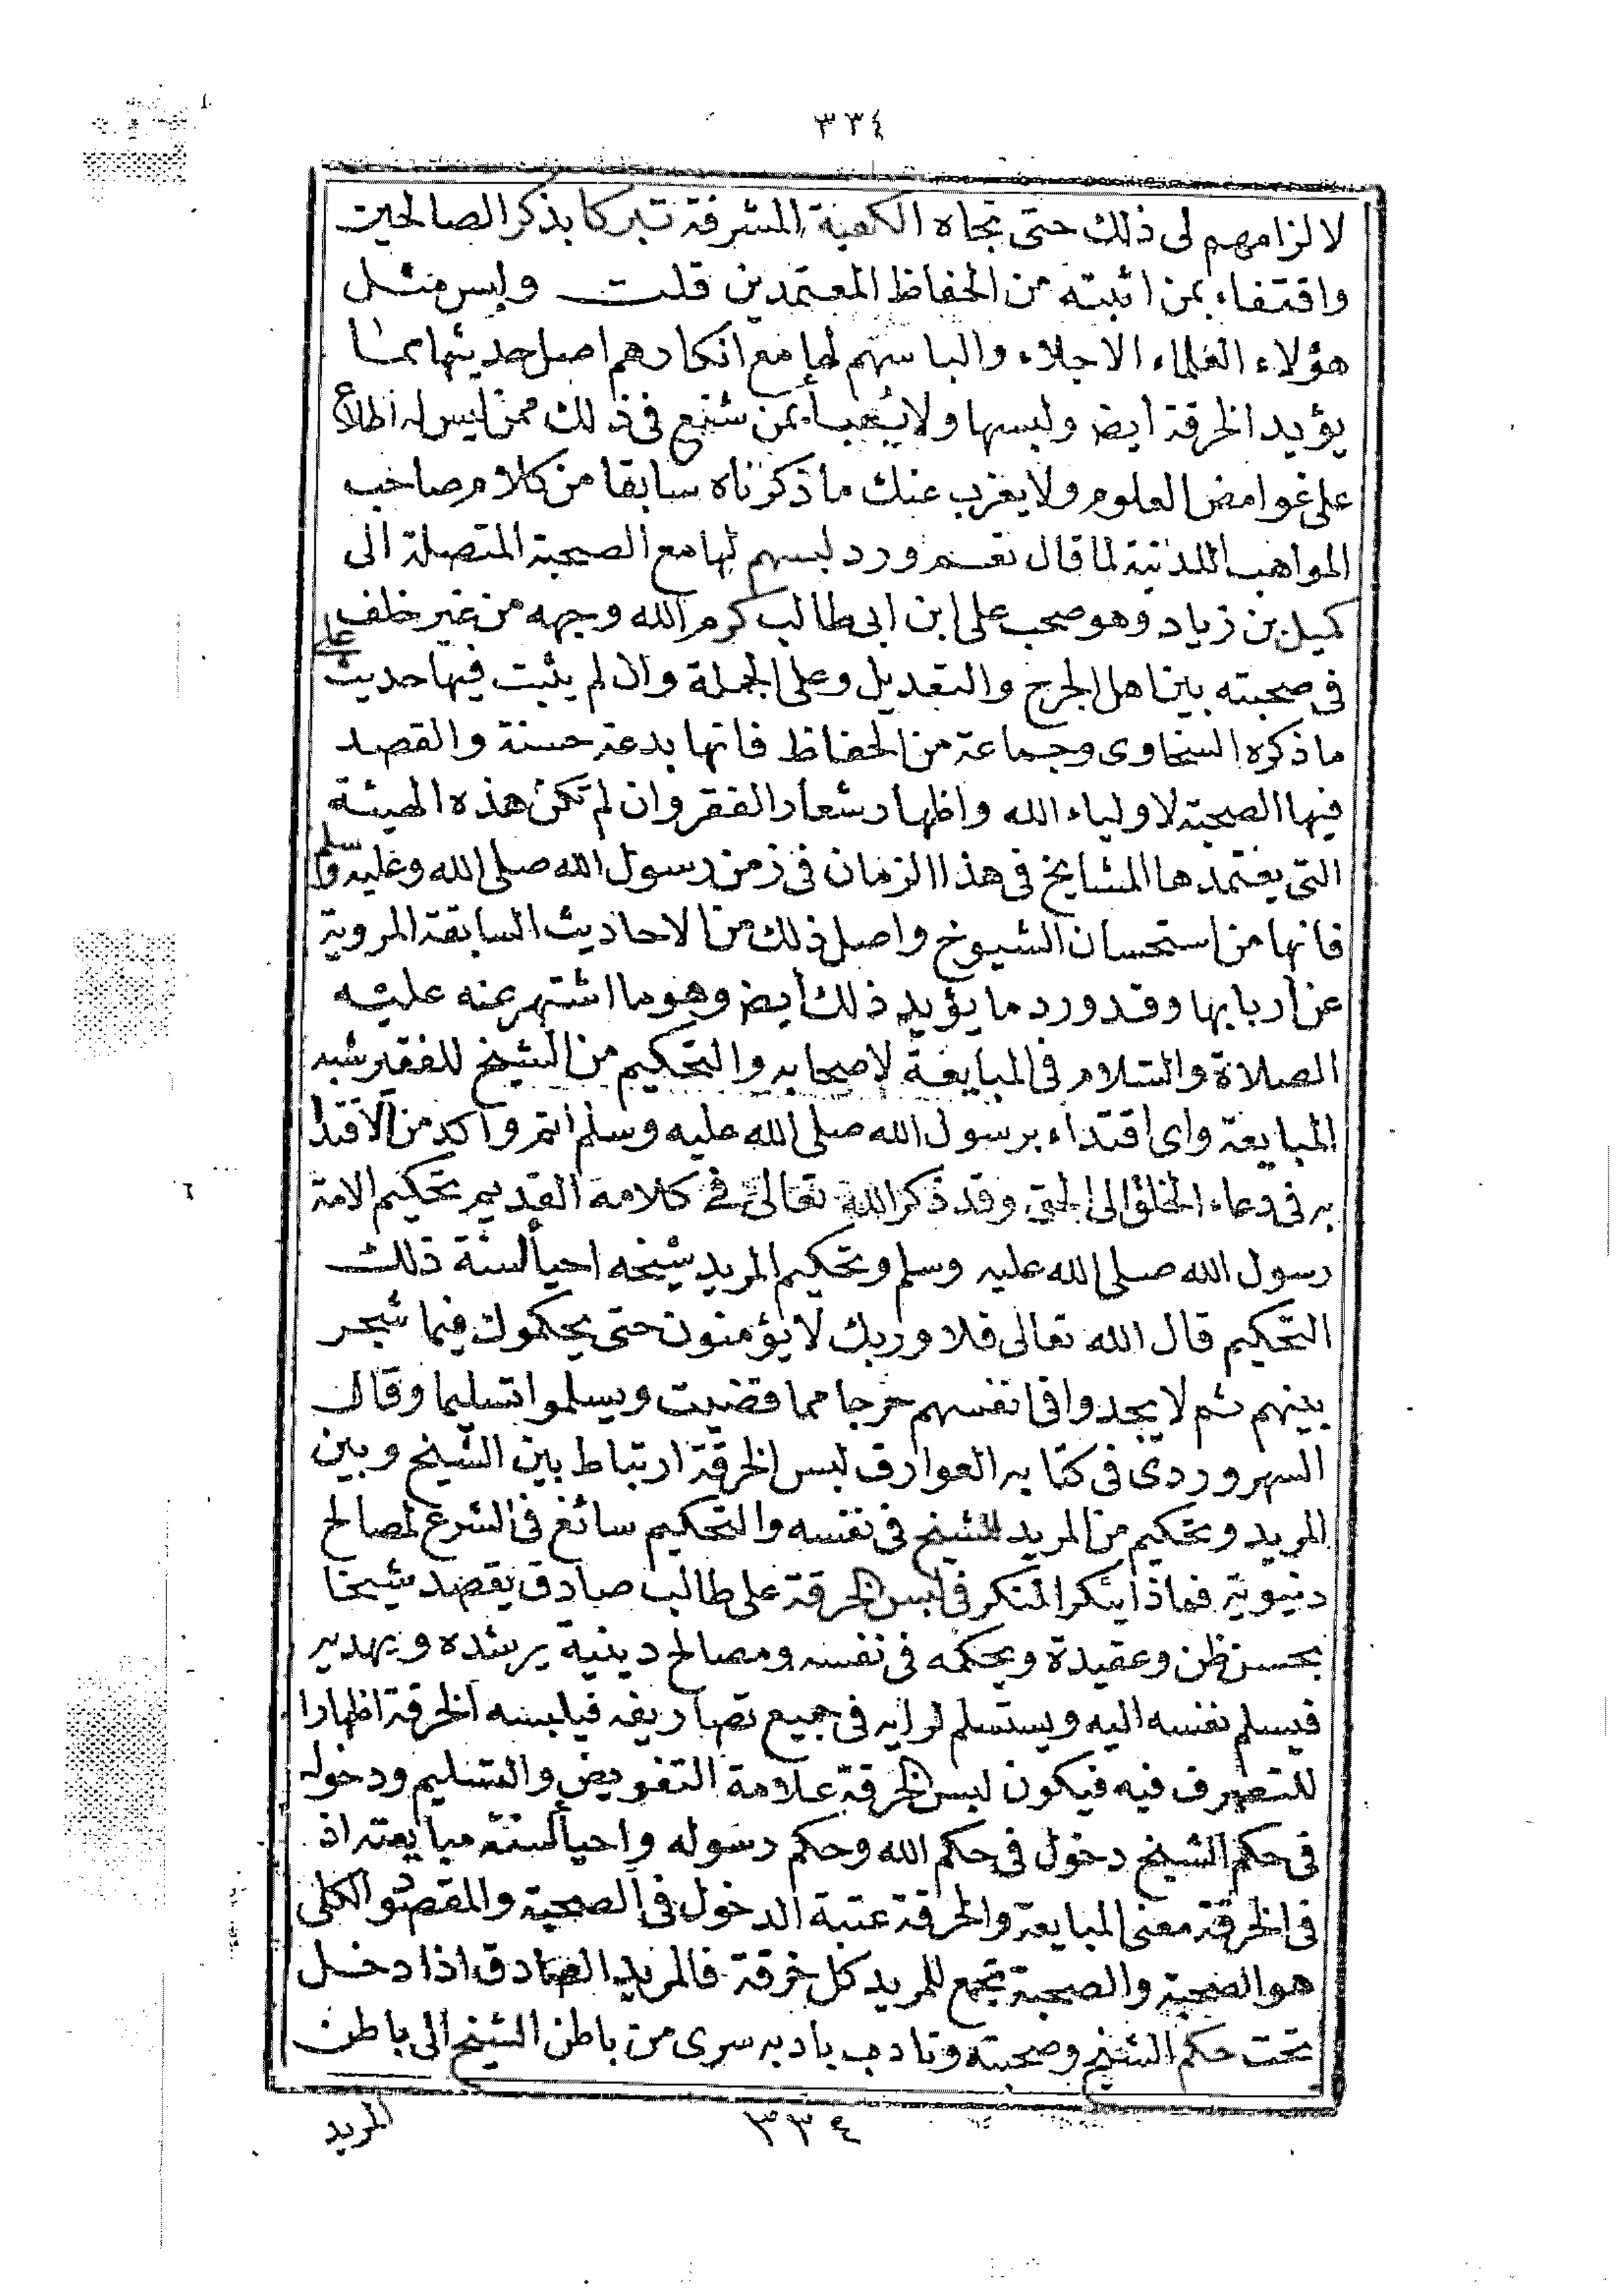 ٣٣٤
لالزامهم لى ذلك حتى تجاه الكعبة المشرفة تبركا بذكر الصالحين
واقتفاء بمن اثبته من الحفاظ المعتمدين قلت وليس مثل
هؤلاء العلماء الاجلاء والباسهم لها مع انكارهم اصل حديثها مما
يؤيد الخرقة ايضر ولبسها ولا يُعبأ بمن شنع فى ذلك ممن ليس له اطلاع
على غوامض العلوم ولا يعزب عنك ما ذكرناه سابقا من كلام صاحب
المواهب اللدنية لما قال نعم ورد لبسهم لها مع الصحبة المتصلة الى
كميل بن زياد وهو صحب على ابن ابى طالب كرم الله وجهه من غير خلف
فى صحبته بين اهل الجرح والتعديل وعلى الجملة وان لم يثبت فيها حديث على
ما ذكره السخاوى وجماعة من الحفاظ فانها بدعة حسنة والقصد
فيها الصحبة لاولياء الله واظهار شعار الفقر وان لم تكن هذه الهيئة
التى يعتمدها المشايخ فى هذا الزمان فى زمن رسول الله صلى الله وعليه وسلم
فانها من استحسان الشيوخ واصل ذلك من الاحاديث السابقة المروية
عن اربابها وقد ورد ما يؤيد ذلك ايضر وهو ما اشتهر عنه عليه
الصلاة والسلام فى المبايعة لاصحابه والتحكيم من الشيخ للفقير شبه
المبايعة واى اقتداء برسول الله صلى الله عليه وسلم اتم واكد من الاقتدا
به فى دعاء الخلق الى الحق وقد ذكر الله تعالى فى كلامه القديم تحكيم الامة
رسول الله صلى الله عليه وسلم وتحكيم المريد شيخه احيا لسنة ذلك
التحكيم قال الله تعالى فلا وربك لا يؤمنون حتى يحكموك فيما شجر
بينهم ثم لا يجدوا فى انفسهم حرجا مما قضيت ويسلموا تسليما وقال
السهروردى فى كتابه العوارف لبس الخرقة ارتباط بين الشيخ وبين
المريد وتحكيم من المريد للشيخ فى نفسه والتحكيم سائغ فى الشرع لمصالح
دنيوية فماذا ينكر المنكر فى لبس الخرقة على طالب صادق يقصد شيخا
بحسن ظن وعقيدة ويحكمه فى نفسه ومصالح دينية يرشده ويهديه
فيسلم نفسه اليه ويستسلم لرايه فى جميع تصاريفه فيلبسه الخرقة اظهارا
للتصرف فيه فيكون لبس الخرقة علامة التفويض والتسليم ودخوله
فى حكم الشيخ دخول فى حكم الله وحكم رسوله واحيا لسنة مبايعته اذ
فى الخرقة معنى المبايعة والخرقة عتبة الدخول فى الصحبة والمقصود الكلى
هو الصحبة والصحبة تجمع للمريد كل خرقة فالمريد الصادق اذا دخل
تحت حكم الشيخ وصحبته وتادب بادبه سرى من باطن الشيخ الى باطن
المريد
٣٣٤